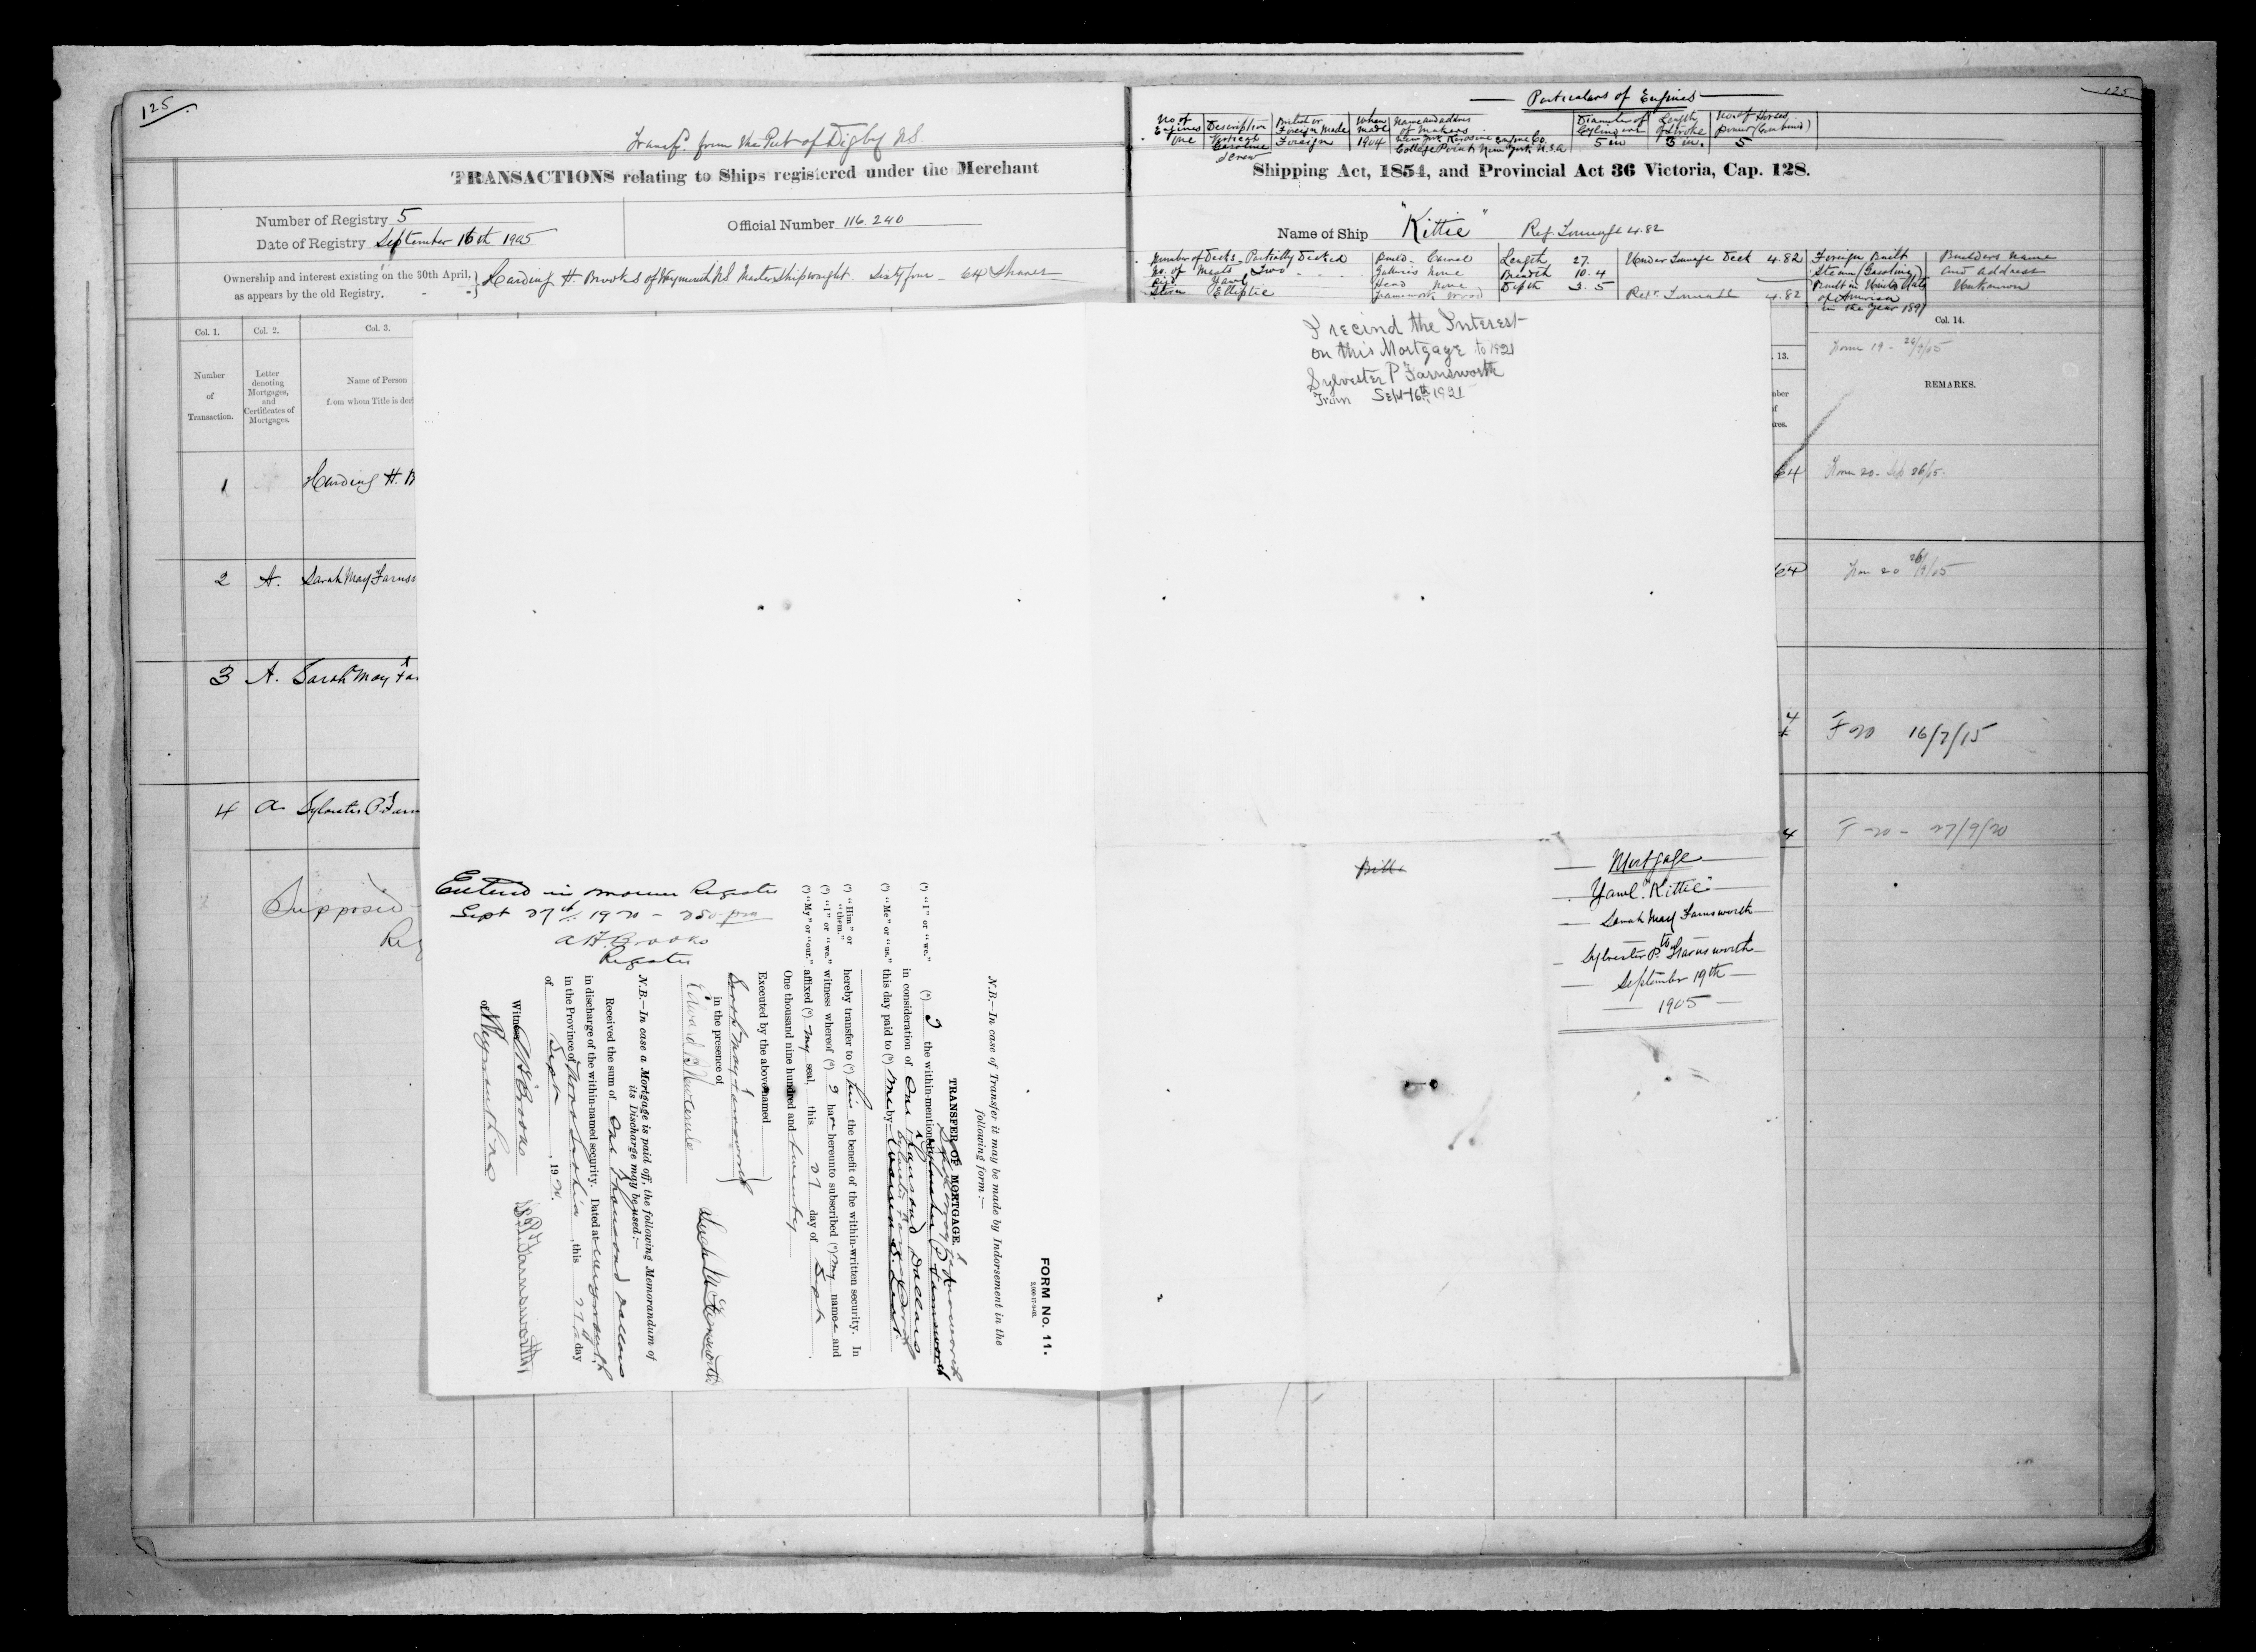 125.
125
Transfd. from the Port of Digby N.S.
TRANSACTIONS relating to Ships registered under the Merchant
Number of Registry 5
Date of Registry September 16th 1905
Official Number 116.240
Ownership and interest existing on the 30th April,
as appears by the old Registry.
Harding H. Brooks of Weymouth N.S Master Shipwright. Sixty four - 64 Shares
Particulars of Engines
No of Engines
Description
British or Foreign Made
When Made
Name and address of Makers
Diameter of Cylinders
Length of Stroke
No of Horses power (Combined)
One
Vertical Gasoline Screw
Foreign
1904
New York Kerosine Engine Co
College Point, New York, U.S.A
5 in
5 in.
5
Shipping Act, 1854, and Provincial Act 36 Victoria, Cap. 128.
Name of Ship "Kittie" Reg. Tonnage 4.82
Number of Decks Partially Decked
No. of Masts Two
Rig Yawl
Stern Elliptic
Build Carvel
Galleries None
Head None
Framework Wood
Length 27.
Breadth 10.4
Depth 3.5
Under Tonnage Deck 4.82
Regr. Tonnage 4.82
Foreign Built
Steam (Gasoline)
Built in United States
of America
in the year 1891
Builders name
and address
Unknown
Col. 1.
Col. 2.
Col. 3.
Number
of
Transaction.
Letter
denoting
Mortgages,
and
Certificates of
Mortgages.
Name of Person
from whom Title is deri
. 13.
Col. 14.
REMARKS.
Form 19 - 26/9/05
1
Harding H. B
64
Form 20 - Sep 26/05.
2
A.
Sarah May Farns
64
26/9/05
3
A.
Sarah May Fa
F 20 16/7/15
4
A
Sylvester P. Farn
4
F - 20 - 27/9/20
Supposed
Reg
I recind the Interest
on this Mortgage to 1921
Sylvester P Farnsworth
From Sept 16th 1921
Bill
Mortgage
Yawl "Kittie"
Sarah May Farnsworth
to
Sylvester P. Farnsworth
September 19th
1905
Entered in Register
Sept 27th 1920 - 2 50 pm
A H Brooks
Register
FORM No. 11.
N.B.—In case of Transfer it may be made by Indorsement in the
following form:—
TRANSFER OF MORTGAGE.
(a) "I" or "we." (a) I the within-mentioned Sylvester P Farnsworth
in consideration of One Thousand Dollars
(b) "Me" or "us." this day paid to (b) me by
(c) "Him" or "them." hereby transfer to (c) him the benefit of the within-written security. In
(d) "I" or "we." witness whereof (d) I have hereunto subscribed (e) my name and
(e) "My" or "our." affixed (e) my seal, this 27 day of Sept
One thousand nine hundred and twenty
Executed by the above-named
Sarah May Farnsworth
in the presence of
N.B.—In case a Mortgage is paid off, the following Memorandum of
its Discharge may be used:—
Received the sum of One Thousand Dollars
in discharge of the within-named security. Dated at Weymouth
in the Province of Nova Scotia, this 27th day
of Sept, 1920.
Witness A H Brooks
S. P. Farnsworth
of Weymouth N.S